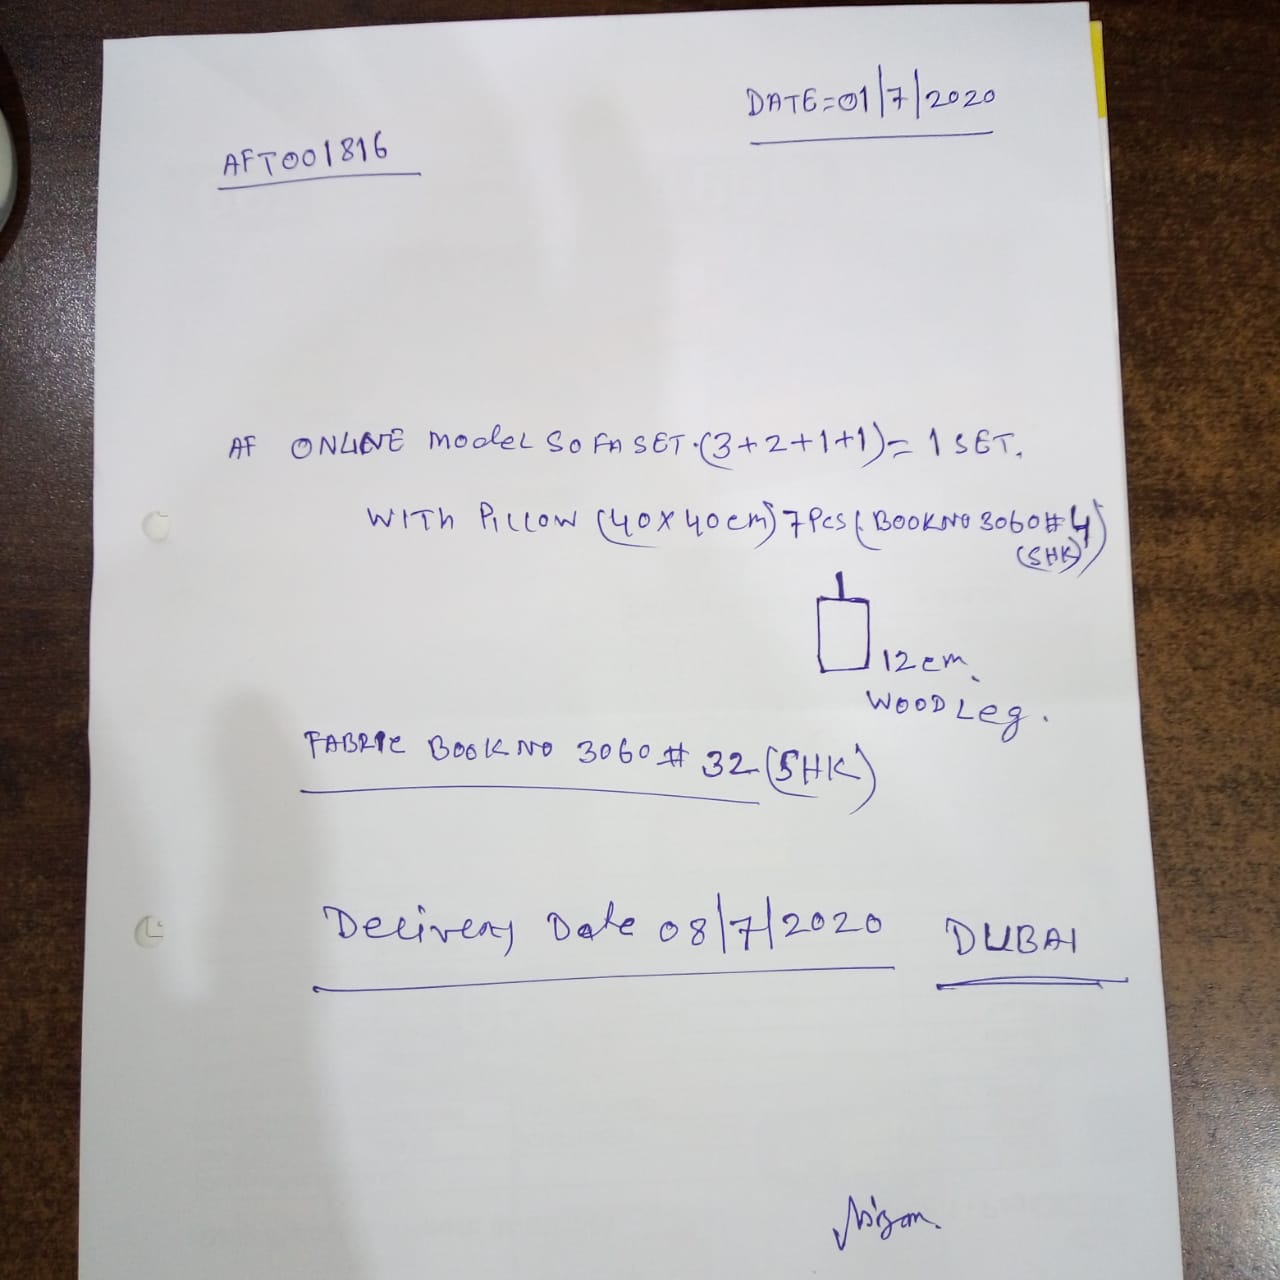 DATE=01/7/2020
AFT001816
AF ONLINE model SOFA SET.(3+2+1+1)= 1 SET.
WITh PILLOW (40X40cm) 7Pcs (BOOK NO 3060#4)
(SHK)
12cm.
WOOD Leg.
FABRIC BOOK NO 3060# 32 (SHK)
Delivery Date 08/7/2020 DUBAI